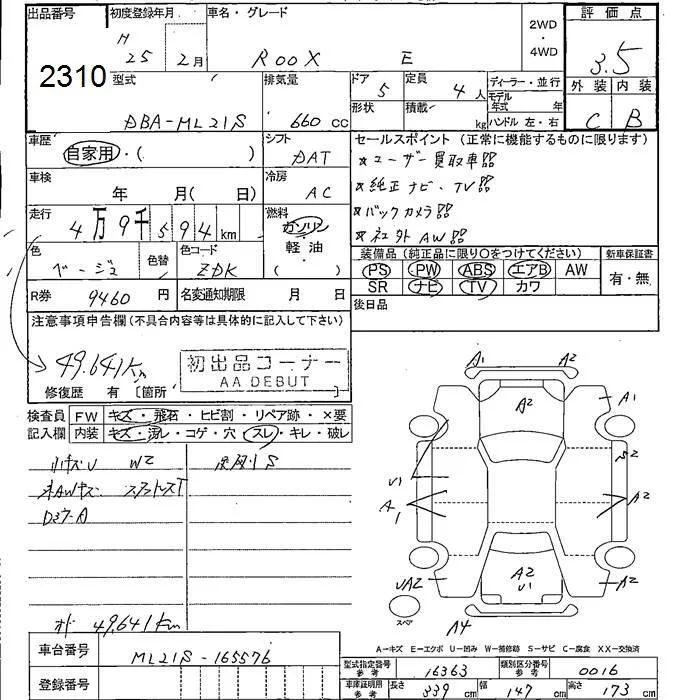 出品番号 2310
初度登録年月 H 25 2月
車名・グレード ROOX E
2WD・4WD
評価点 3.5
外装 内装
C B
型式 DBA-ML21S
排気量 660 cc
ドア 5
定員 4人
形状 積載 kg
ディーラー・並行
モデル年式 年
ハンドル 左・右
車歴 自家用・( )
シフト DAT
セールスポイント(正常に機能するものに限ります)
☆ユーザー買取車
☆純正ナビ、TV
☆バックカメラ
☆社外AW
車検 年 月( 日)
冷房 AC
走行 4万9千594km
燃料 ガソリン 軽油 ( )
色 ベージュ
色替
色コード ZDK
装備品(純正品に限り○をつけてください)
PS PW ABS エアB AW
SR ナビ TV カワ
新車保証書 有・無
R券 9460円
名変通知期限 月 日
後日品
注意事項申告欄(不具合内容等は具体的に記入して下さい)
49.641Km
初出品コーナー
AA DEBUT
修復歴 有 〔箇所
検査員記入欄
FW キズ・飛石・ヒビ割・リペア跡・×要
内装 キズ・汚レ・コゲ・穴・スレ・キレ・破レ
小キズU W2
AWキズ
49.641Km
A1 A2
A2
A1
U1
A1
S2
A2
UA2
A2
U1
A2
A4
スペア
A-キズ E-エクボ U-凹み W-補修跡 S-サビ C-腐食 XX-交換済
車台番号 ML21S-165576
登録番号
型式指定番号 参考 16363
類別区分番号 参考 0016
車庫証明用 参考 長さ 339 cm 幅 147 cm 高さ 173 cm